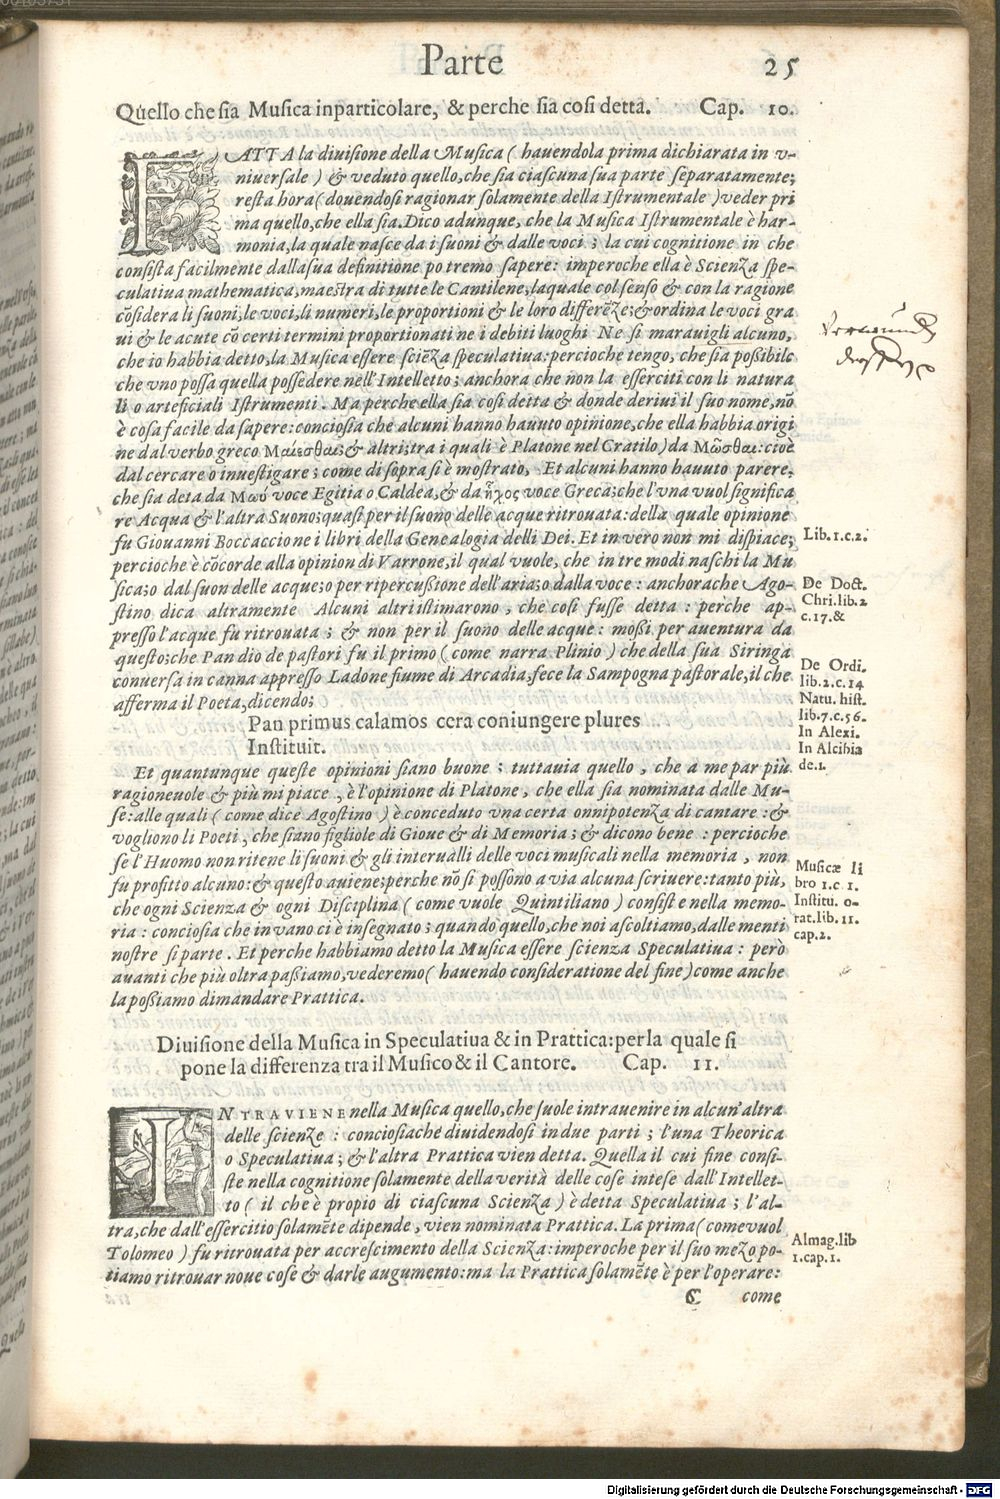 Parte 25
Quello che sia Musica inparticolare, & perche sia cosi detta. Cap. 10.
FATTA la diuisione della Musica ( hauendola prima dichiarata in v-
niuersale ) & veduto quello, che sia ciascuna sua parte separatamente;
resta hora ( douendosi ragionar solamente della Istrumentale ) veder pri
ma quello, che ella sia. Dico adunque, che la Musica Istrumentale è har-
monia, la quale nasce da i suoni & dalle voci ; la cui cognitione in che
consista facilmente dalla sua definitione potremo sapere: imperoche ella è Scienza spe-
culatiua mathematica, maestra di tutte le Cantilene, laquale col senso & con la ragione
cōsidera li suoni, le voci, li numeri, le proportioni & le loro differēze; & ordina le voci gra
ui & le acute cō certi termini proportionati ne i debiti luoghi Ne si marauigli alcuno,
che io habbia detto, la Musica essere sciēza speculatiua: percioche tengo, che sia poßibile
che vno possa quella possedere nell'Intelletto; anchora che non la esserciti con li natura
li o arteficiali Istrumenti. Ma perche ella sia cosi detta & donde deriui il suo nome, nō
è cosa facile da sapere: conciosia che alcuni hanno hauuto opinione, che ella habbia origi
ne dal verbo greco Μαίεσθαι; & altri ( tra i quali è Platone nel Cratilo ) da Μῶσθαι: cioè
dal cercare o inuestigare ; come di sopra si è mostrato, Et alcuni hanno hauuto parere,
che sia deta da Μωύ voce Egitia o Caldea, & da ἦχος voce Greca; che l'vna vuol significa
re Acqua & l'altra Suono; quasi per il suono delle acque ritrouata: della quale opinione
fu Giouanni Boccaccio ne i libri della Genealogia delli Dei. Et in vero non mi dispiace;
percioche è cōcorde alla opinion di Varrone, il qual vuole, che in tre modi naschi la Mu
sica; o dal suon delle acque; o per ripercußione dell'aria; o dalla voce : anchorache Ago-
stino dica altramente Alcuni altri istimarono, che cosi fusse detta : perche ap-
presso l'acque fu ritrouata ; & non per il suono delle acque : moßi per auentura da
questo; che Pan dio de pastori fu il primo ( come narra Plinio ) che della sua Siringa
conuersa in canna appresso Ladone fiume di Arcadia, fece la Sampogna pastorale, il che
afferma il Poeta, dicendo;
Pan primus calamos cera coniungere plures
Instituit.
Et quantunque queste opinioni siano buone ; tuttauia quello, che a me par più
ragioneuole & più mi piace, è l'opinione di Platone, che ella sia nominata dalle Mu-
se: alle quali ( come dice Agostino ) è conceduto vna certa onnipotenza di cantare : &
vogliono li Poeti, che siano figliole di Gioue & di Memoria; & dicono bene : percioche
se l'Huomo non ritene li suoni & gli interualli delle voci musicali nella memoria, non
fu profitto alcuno: & questo auiene; perche nō si possono a via alcuna scriuere: tanto più,
che ogni Scienza & ogni Disciplina ( come vuole Quintiliano ) consiste nella memo-
ria : conciosia che in vano ci è insegnato ; quando quello, che noi ascoltiamo, dalle menti
nostre si parte. Et perche habbiamo detto la Musica essere scienza Speculatiua : però
auanti che più oltra paßiamo, vederemo ( hauendo consideratione del fine ) come anche
la poßiamo dimandare Prattica.
Lib.1.c.2.
De Doct.
Chri.lib.2
c.17.&
De Ordi.
lib.2.c.14
Natu. hist.
lib.7.c.56.
In Alexi.
In Alcibia
de.1.
Musicæ li
bro 1.c 1.
Institu. o-
rat.lib. 11.
cap.2.
Diuisione della Musica in Speculatiua & in Prattica: per la quale si
pone la differenza tra il Musico & il Cantore. Cap. 11.
INTRAVIENE nella Musica quello, che suole intrauenire in alcun'altra
delle scienze : conciosiache diuidendosi in due parti ; l'una Theorica
o Speculatiua ; & l'altra Prattica vien detta. Quella il cui fine consi-
ste nella cognitione solamente della verità delle cose intese dall'Intellet-
to ( il che è propio di ciascuna Scienza ) è detta Speculatiua ; l'al-
tra, che dall'essercitio solamēte dipende, vien nominata Prattica. La prima ( come vuol
Tolomeo ) fu ritrouata per accrescimento della Scienza: imperoche per il suo mezo po-
tiamo ritrouar noue cose & darle augumento: ma la Prattica solamēte è per l'operare:
Almag.lib
1.cap.1.
C come
Digitalisierung gefördert durch die Deutsche Forschungsgemeinschaft - DFG